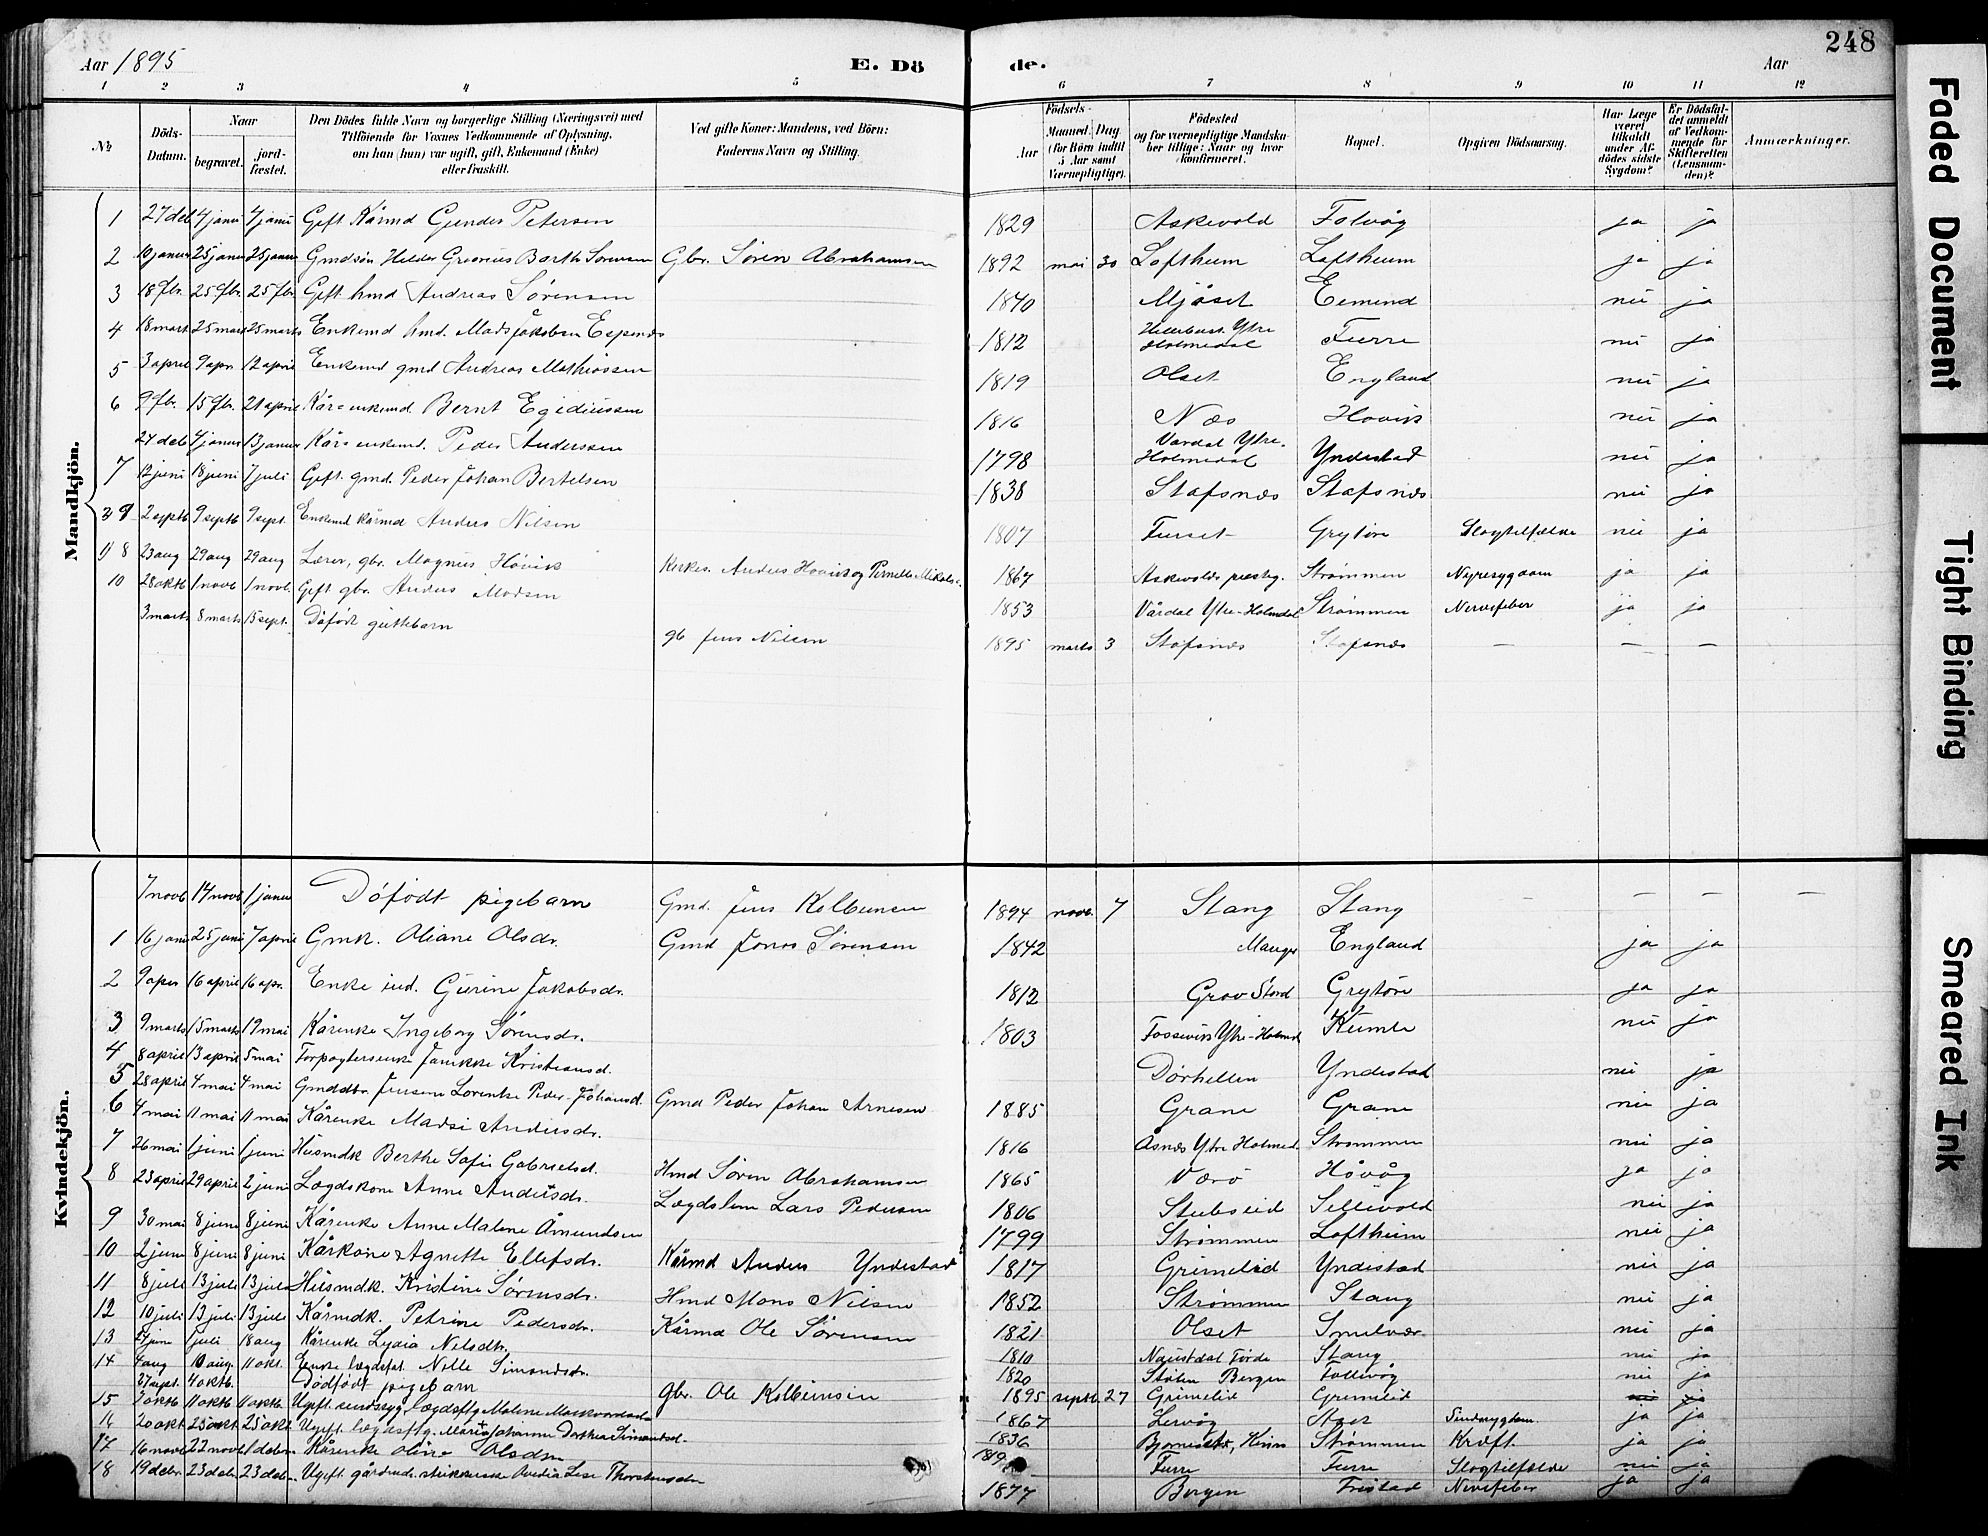 Aar 1895
E. Dö
de.
Aar
248
1 2 3 4 5 6 7 8 9 10 11 12
№
Döds-Datum.
Naar
begravet.
jord-fæstet.
Den Dödes fulde Navn og borgerlige Stilling (Næringsvei) med
Tilföiende for Voxnes Vedkommende af Oplysning,
om han (hun) var ugift, gift, Enkemand (Enke)
eller fraskilt.
Ved gifte Koner: Mandens, ved Börn:
Faderens Navn og Stilling.
Födsels-
Aar
Maaned. Dag
(for Börn indtil
5 Aar samt
Værnepligtige).
Födested
og for værnepligtige Mandska-
ber tillige: Naar og hvor
konfirmeret.
Bopæl.
Opgiven Dödsaarsag.
Har Læge
været
tilkaldt
under Af-
dödes sidste
Sygdom?
Er Dödsfal-
det anmeldt
af Vedkom-
mende for
Skifteretten
(Lensman-
den)?
Anmærkninger.
Mandkjön.
1 27 deb 4 janu 7 janu Gift Kårmd Gjender Petersen 1829 Askevold Folvåg ja ja
2 10 janur 25 janu 25 janur Gmdsön Helder Greorius Barth Sörensen Gbr. Sören Abrahamsen 1892 mai 30 Loftheim Loftheim ja ja
3 18 fbr. 25 fbr. 25 fbr. Gift hmd Andreas Sörensen 1840 Mjåset nei ja
4 18 mart 25 mart 25 marts Enkemd hmd. Mads Jakobsen Espenes 1812 Ytre Holmedal Furre nei ja
5 3 april 9 apr 12 april Enkemd gmd Andreas Mathiassen 1819 Olset England nei ja
6 9 fbr. 15 fbr. 21 april Kår enkemd Bernt Egidiussen 1816 Næs Hovik nei ja
24 deb 4 janur 13 janur Kår enkemd. Peder Anderssen 1798 Vardal Ytre Holmedal Yndestad nei ja
7 12 juni 18 juni 7 juli Gift. gmd. Peder Johan Bertelsen 1838 Stafsnæs Stafsnæs nei ja
9 2 septb 9 septb 9 sept. Enkemd kårmd Anders Nilsen 1807 Furset Grytöre Slagtilfælde nei ja
8 23 aug 29 aug 29 aug Lærer, gbr. Magnus Hövik Kirkes. Anders Hovik og Pernelle Mikals. 1867 Askevolds præsteg. Strömmen Nyresygdom ja ja
10 28 oktb 1 novb 1 novb. Gift gbr. Anders Madsen 1853 Vårdal Ytre-Holmedal Strömmen Nervefeber ja ja
3 marts 8 marts 15 sept. Döfödt guttebarn gb Jens Nilsen 1895 marts 3 Stafsnæs Stafsnæs — — —
Kvindekjön.
7 novb 14 novb 1 janur Döfödt pigebarn Gmd. Jens Kolbensen 1894 novb. 7 Stang Stang — — —
1 16 janu 25 janu 7 april Gmk. Oliane Olsdr. Gmd Jonas Sörensen 1842 Manger England ja ja
2 9 aper 16 april 16 apr. Enke ind. Gurine Jakobsdr. 1812 Grov Stord Grytöre ja ja
3 9 marts 15 marts 19 mai Kårenke Ingeborg Sörensdr. 1803 Fossevik Ytre-Holmed Kumle nei ja
4 8 april 13 april 5 mai Forpagtersenke Janikke Kristiansd. Dörhellen Yndestad nei ja
5 28 april 4 mai 4 mai Gmddtr. Jensine Lorentse Peder-Johansd. Gmd Peder Johan Arnesen 1885 Grane Grane nei ja
6 4 mai 11 mai 11 mai Kårenke Madsi Andersdr. 1816 Åsnæs Ytre Holmed. Strömmen nei ja
7 26 mai 1 juni 1 juni Husmdk Berthe Sofie Gabrielsd. Hmd Sören Abrahamsen 1865 Værö Håvåg ja ja
8 23 april 29 april 2 juni Lægdskone Anne Andersdr. Lægdslem Lars Pedersen 1806 Stubseid Sellevold nei ja
9 30 mai 8 juni 8 juni Kårenke Anne Malene Åmundsen 1799 Strömmen Loftheim nei ja
10 2 juni 8 juni 8 juni Kårkone Agnette Ellefsdr. Kårmd Anders Yndestad 1817 Grimelid Yndestad nei ja
11 8 juli 13 juli 13 juli Husmdk. Kristine Sörensdr. Hmd Mons Nilsen 1852 Strömmen Stang nei ja
12 10 juli 13 juli 13 juli Kårmdk. Petrine Pedersdr. Kårmd Ole Sörensen 1821 Olset Smelvær nei ja
13 27 juni 1 juli 18 aug Kårenke Lydia Nelsdtr. 1810 Naustdal Förde Stang nei ja
14 4 aug 10 aug. 11 okt. Enke lægdsfat. Nille Simonsdr. 1820 Stölen Bergen Follevåg nei ja
27 sept. 4 oktb. Dödfödt pigebarn Gbr. Ole Kolbeinsen 1895 septb. 27 Grimelid Grimelid
15 3 oktb 11 oktb 11 oktb. Ugift. sindssyg, lægdsftg Malene 1867 Lervåg Aaer Sindssygdom. ja ja
16 20 okt 25 okt 25 okt Ugift lægdsftg. Maria Johanne Dorthea Simonsd. 1836 Bjørnesetr, Kinn Strömmen Kræft. ja ja
17 16 novb 22 novb 1 debr. Kårenke Oline Olsdtr 1819 Furre Furre Slagtilfælde nei ja
18 19 debr. 23 debr. 23 debr. Ugift. Lise Thorstensdr 1877 Bergen Fristad Nervefeber ja ja
Faded Document
Tight Binding
Smeared Ink